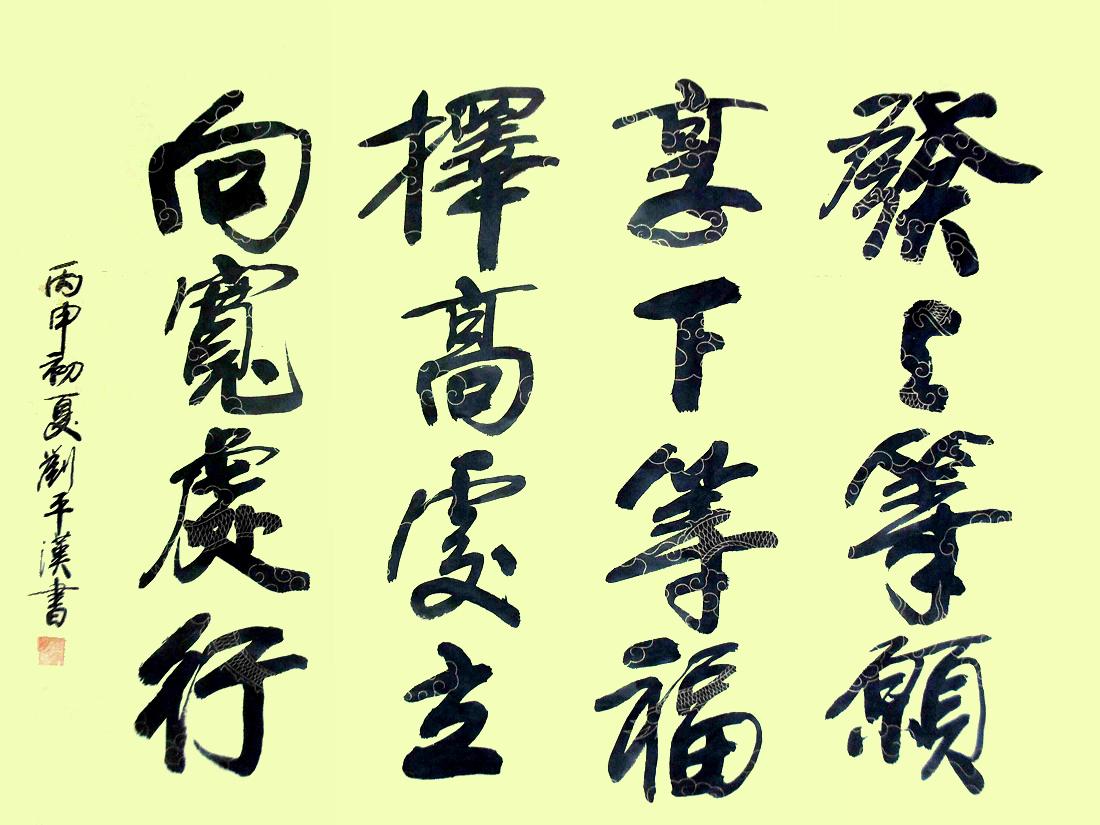 發上等願
享下等福
擇高處立
向寬處行
丙申初夏劉平漢書